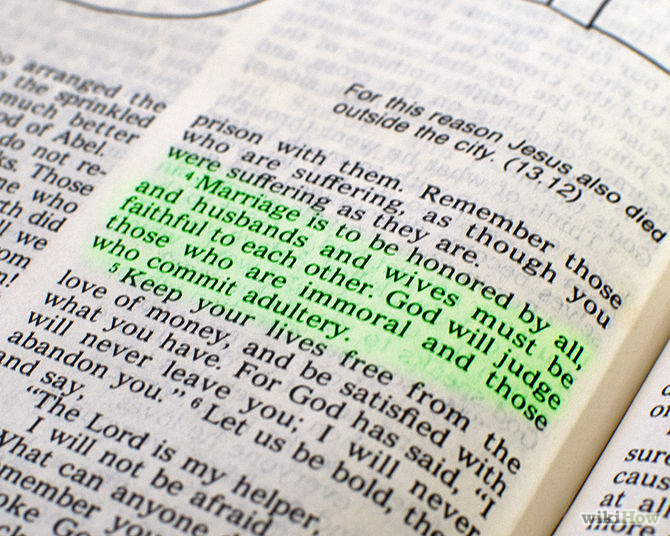 o arranged the
the sprinkled
much better
od of Abel.
do not re-
ks. Those
ne who
rth did
ll we
om
n!
and say,
For this reason Jesus also died
outside the city. (13.12)
prison with them. Remember those
who are suffering, as though you
were suffering as they are.
4 Marriage is to be honored by all,
and husbands and wives must be
faithful to each other. God will judge
those who are immoral and those
who commit adultery.
5 Keep your lives free from the
love of money, and be satisfied with
what you have. For God has said, “I
will never leave you; I will never
abandon you.” 6 Let us be bold, the
“The Lord is my helper,
I will not be afraid
What can anyone d
emember you
oke Go
sure
caus
at al
more
wikiHow